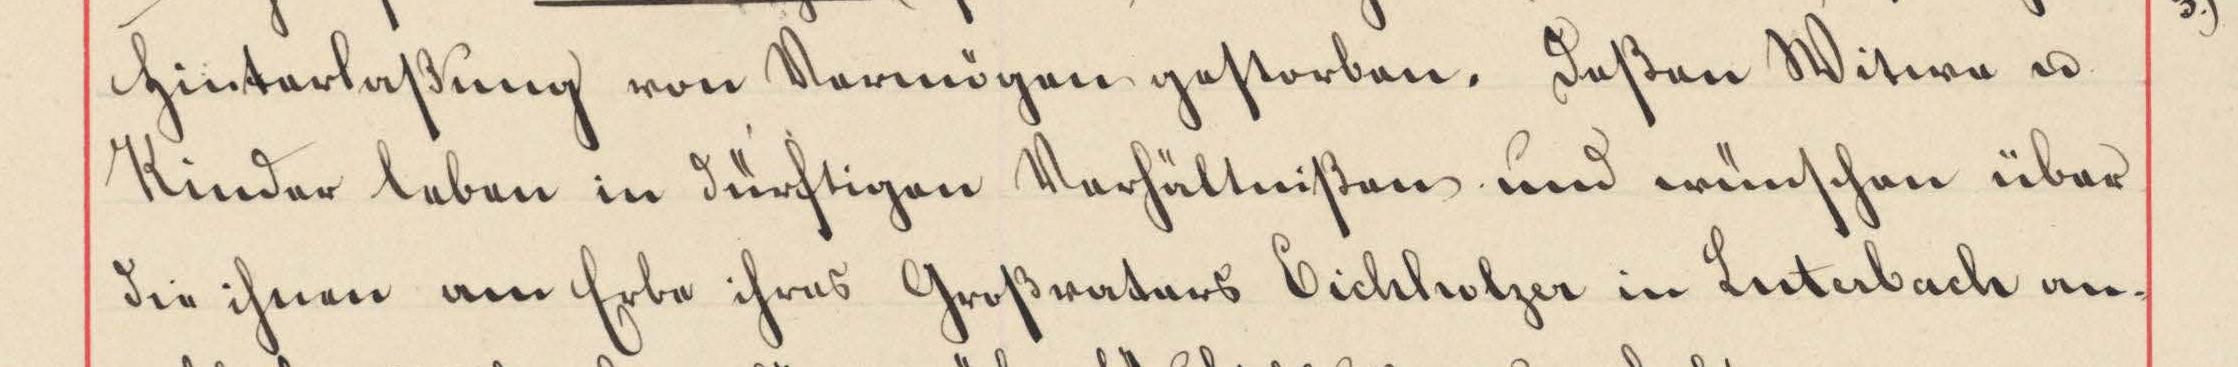 Hinterlaßung von Vermögen gestorben. Deßen Witwe u
Kinder leben in dürftigen Verhältnißen und wünschen über
die ihnen am Erbe ihres Großvaters Eichholzer in Luterbach an-